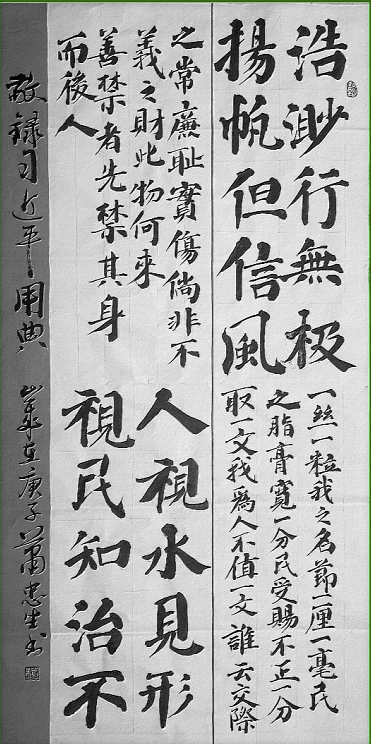 浩渺行無极
揚帆但信風
一丝一粒我之名節一厘一毫民
之脂膏寬一分民受賜不止一分
取一文我爲人不值一文誰云交際
之常廉耻實傷倘非不
義之財此物何來
善禁者先禁其身
而後人
人視水見形
視民知治不
敬録习近平用典 嵗在庚子蕭忠生书